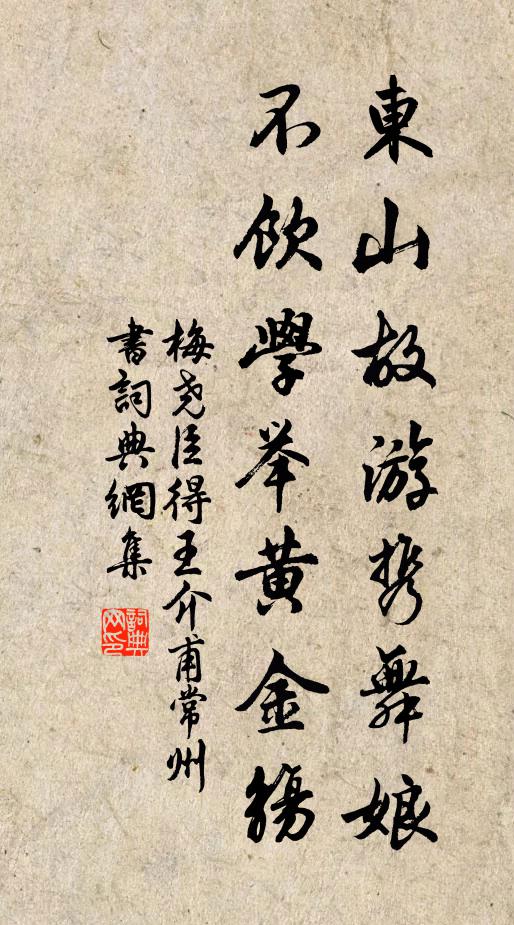 東山故游携舞娘
不飲學举黄金觴
梅尧臣得王介甫常州
書詞典網集
詞典网印